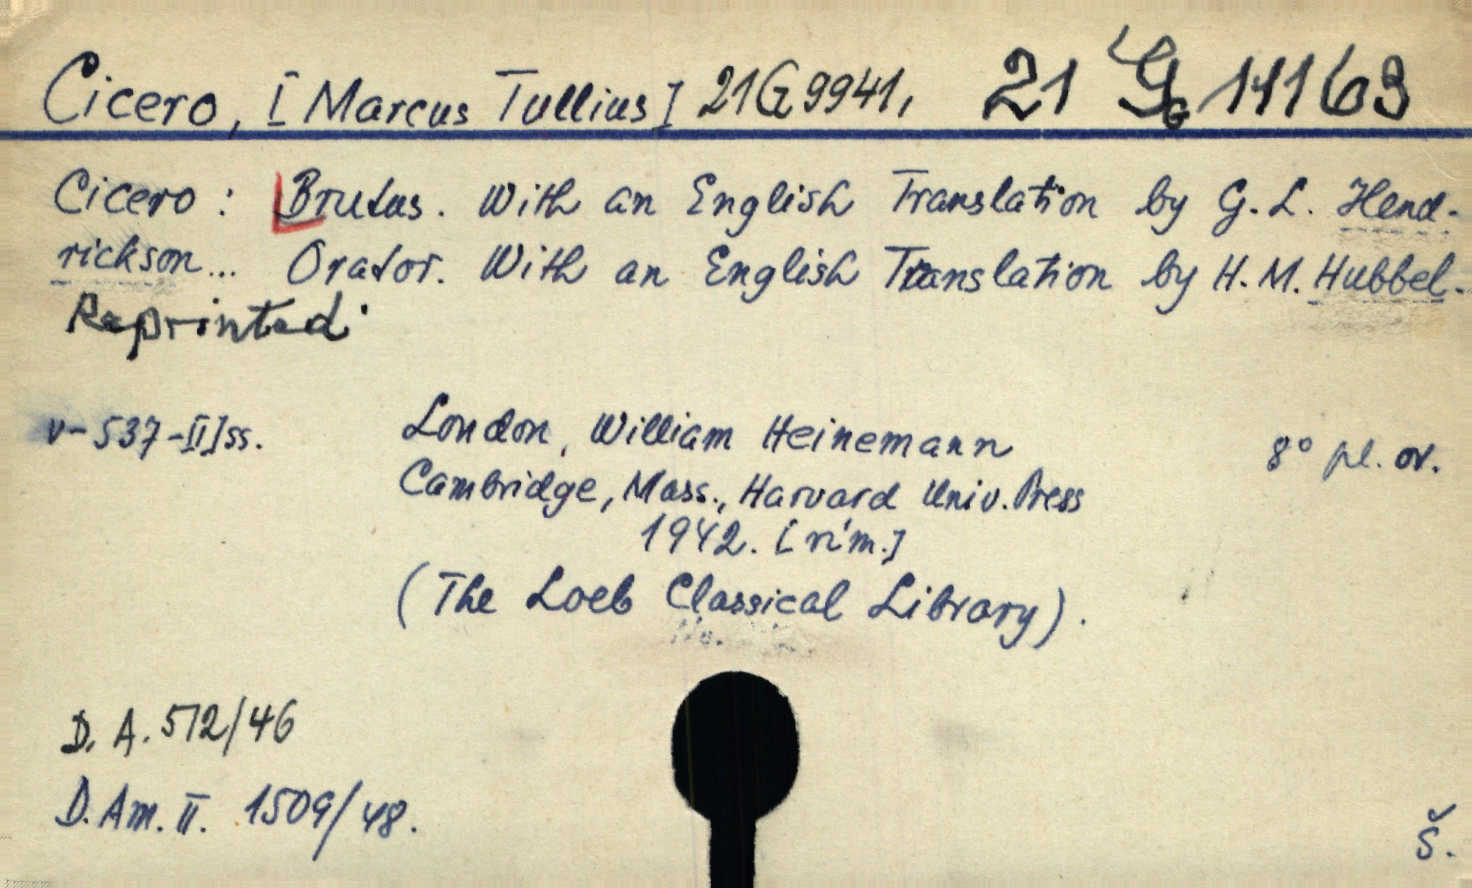 Cicero, [Marcus Tullius] 21G9941, 21 G 11163
Cicero: Brutus. With an English Translation by G. L. Hend-
rickson... Orator. With an English Translation by H. M. Hubbel.
Reprinted.
v-537-[I]ss. London, William Heinemann 8° pl. ov.
Cambridge, Mass., Harvard Univ. Press
1942. [rím.]
(The Loeb Classical Library).
D. A. 512/46
D. Am. II. 1509/48.
Š.